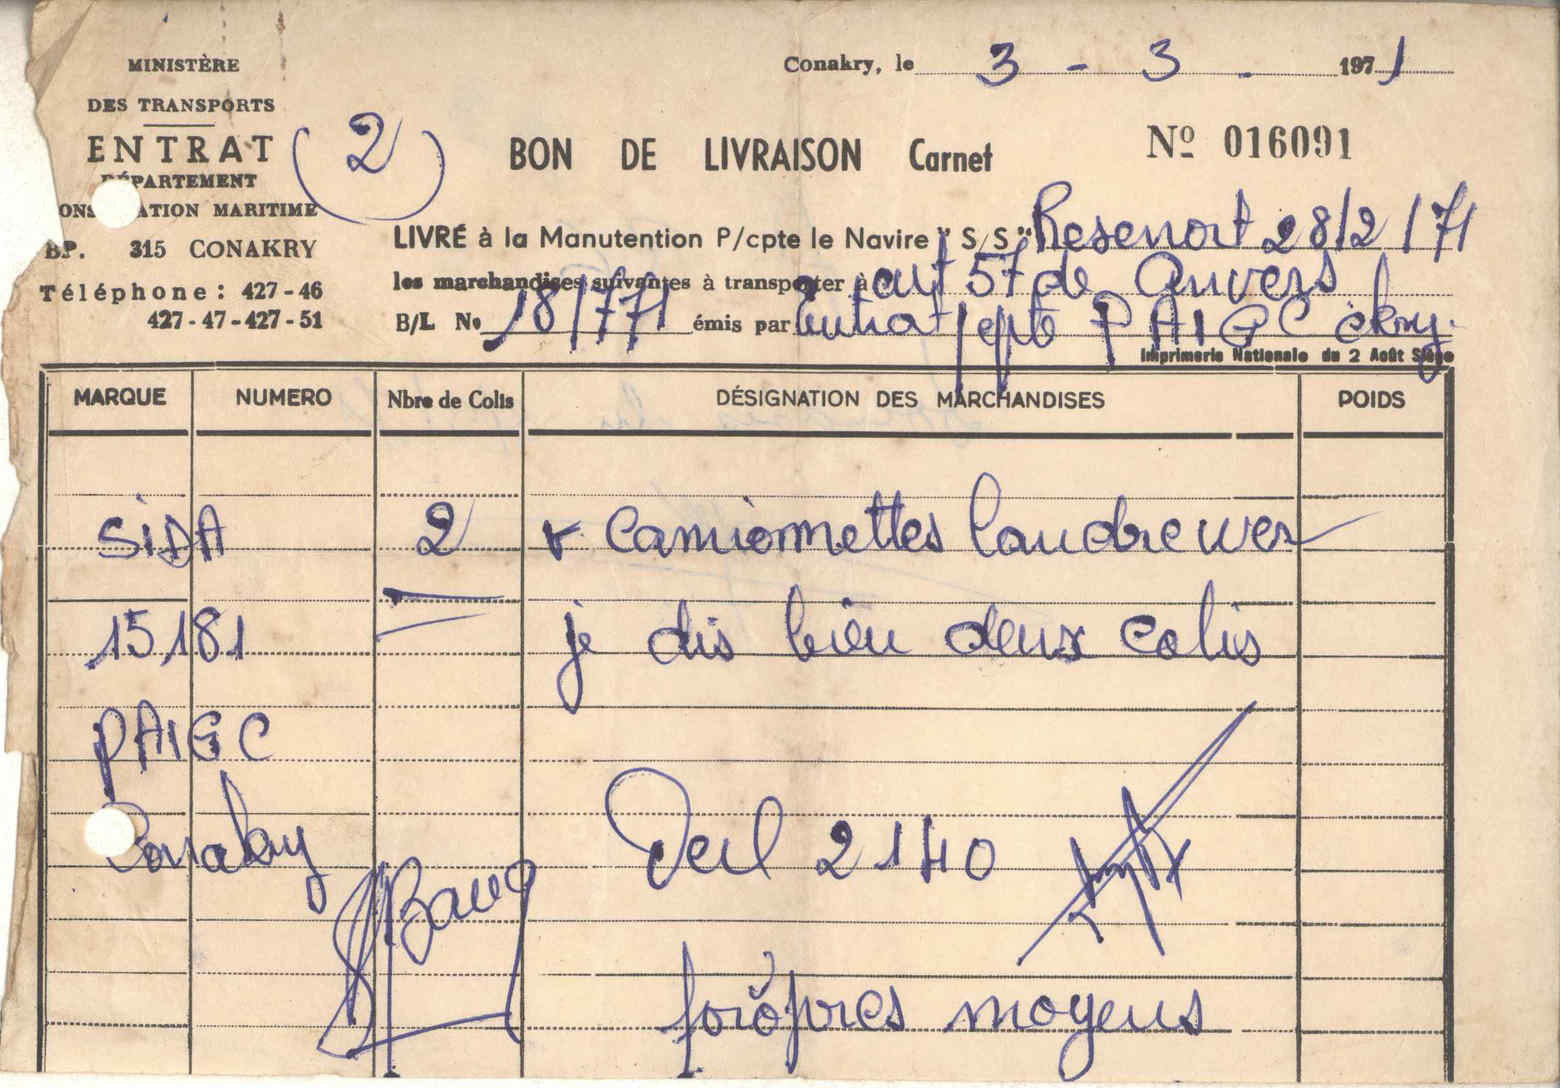 MINISTÈRE
DES TRANSPORTS
ENTRAT
DÉPARTEMENT
CONSIGNATION MARITIME
BP. 315 CONAKRY
Téléphone : 427-46
427-47-427-51
(2)
Conakry, le 3 - 3 - 1971
BON DE LIVRAISON Carnet
Nº 016091
LIVRÉ à la Manutention P/cpte le Navire "S/S" 28/2/71
les marchandises suivantes à transporter à 57 de Anvers
B/L No 18/771 émis par Entrat/cpte PAIGC ckry.
Imprimerie Nationale du 2 Août Siège
MARQUE NUMERO Nbre de Colis DÉSIGNATION DES MARCHANDISES POIDS
SiDA 2 camionnettes
15.181 je dis bien deux colis
PAIGC
Conakry 2140
moyens